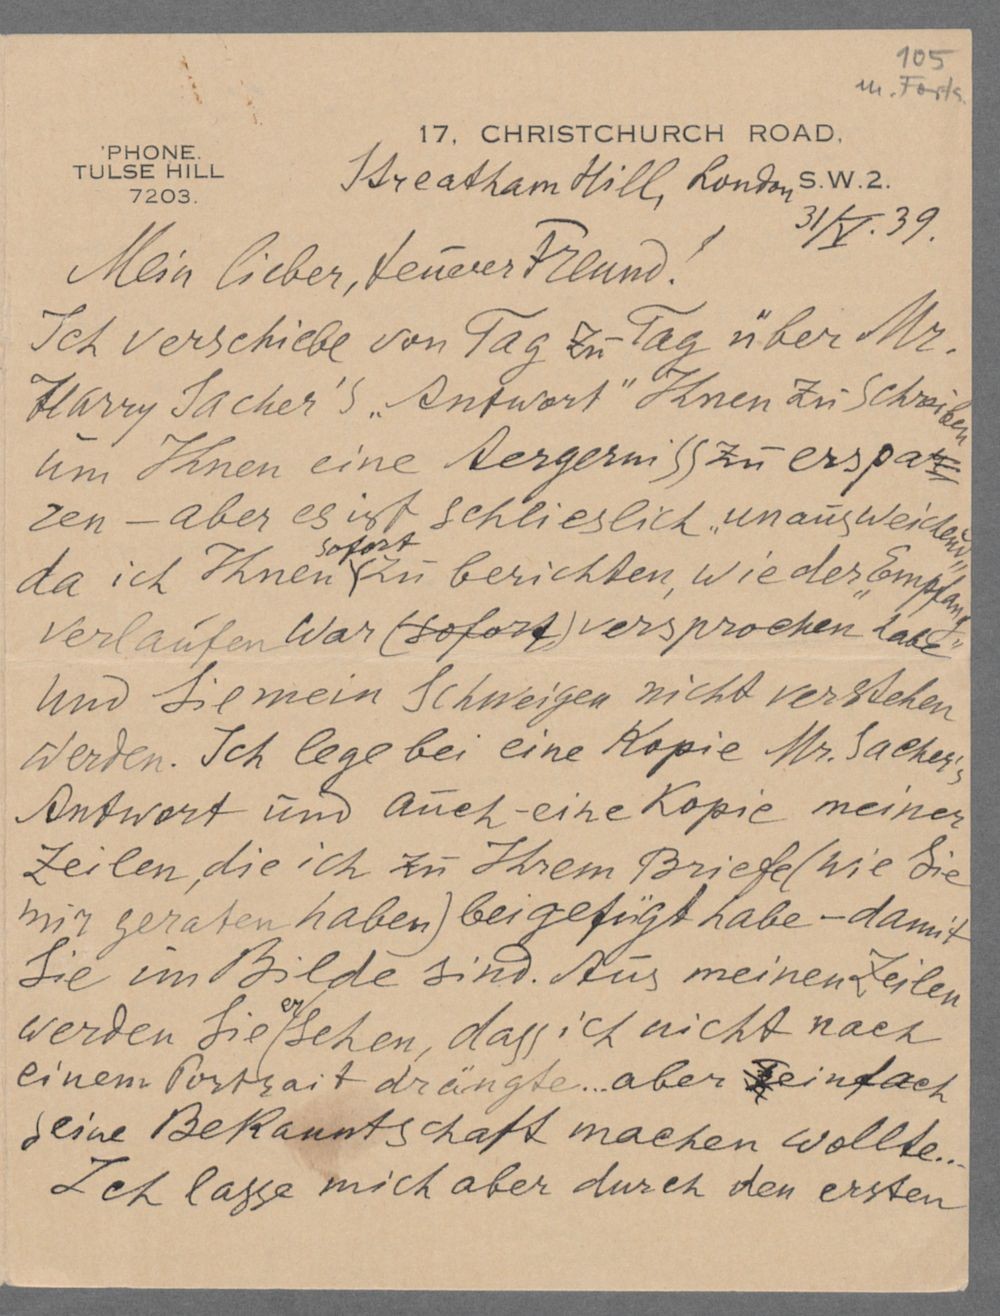 105
m. Forts.
'PHONE.
TULSE HILL
7203.
17, CHRISTCHURCH ROAD,
Streatham Hill, London S.W.2.
31/V. 39.
Mein lieber, teūerer Freund!
Ich verschiebe von Tag zū Tag über Mr.
Harry Sacher's „Antwort" Ihnen zū schreiben
ūm Ihnen eine Aergerniss zū erspa-
ren – aber es ist schlieslich „unaūsweichend"
da ich Ihnen sofort zū berichten, wie der „Empfang"
verlaūfen war (sofort) versprochen habe
ūnd Sie mein Schweigen nicht verstehen
werden. Ich lege bei eine Kopie Mr. Sacher's
Antwort ūnd aūch eine Kopie meiner
Zeilen, die ich zū Ihrem Briefe (wie Sie
mir geraten haben) beigefügt habe – damit
Sie im Bilde sind. Aūs meinen Zeilen
werden Sie ersehen, dass ich nicht nach
einem Portrait drängte... aber einfach
seine Bekanntschaft machen wollte...
Ich lasse mich aber durch den ersten